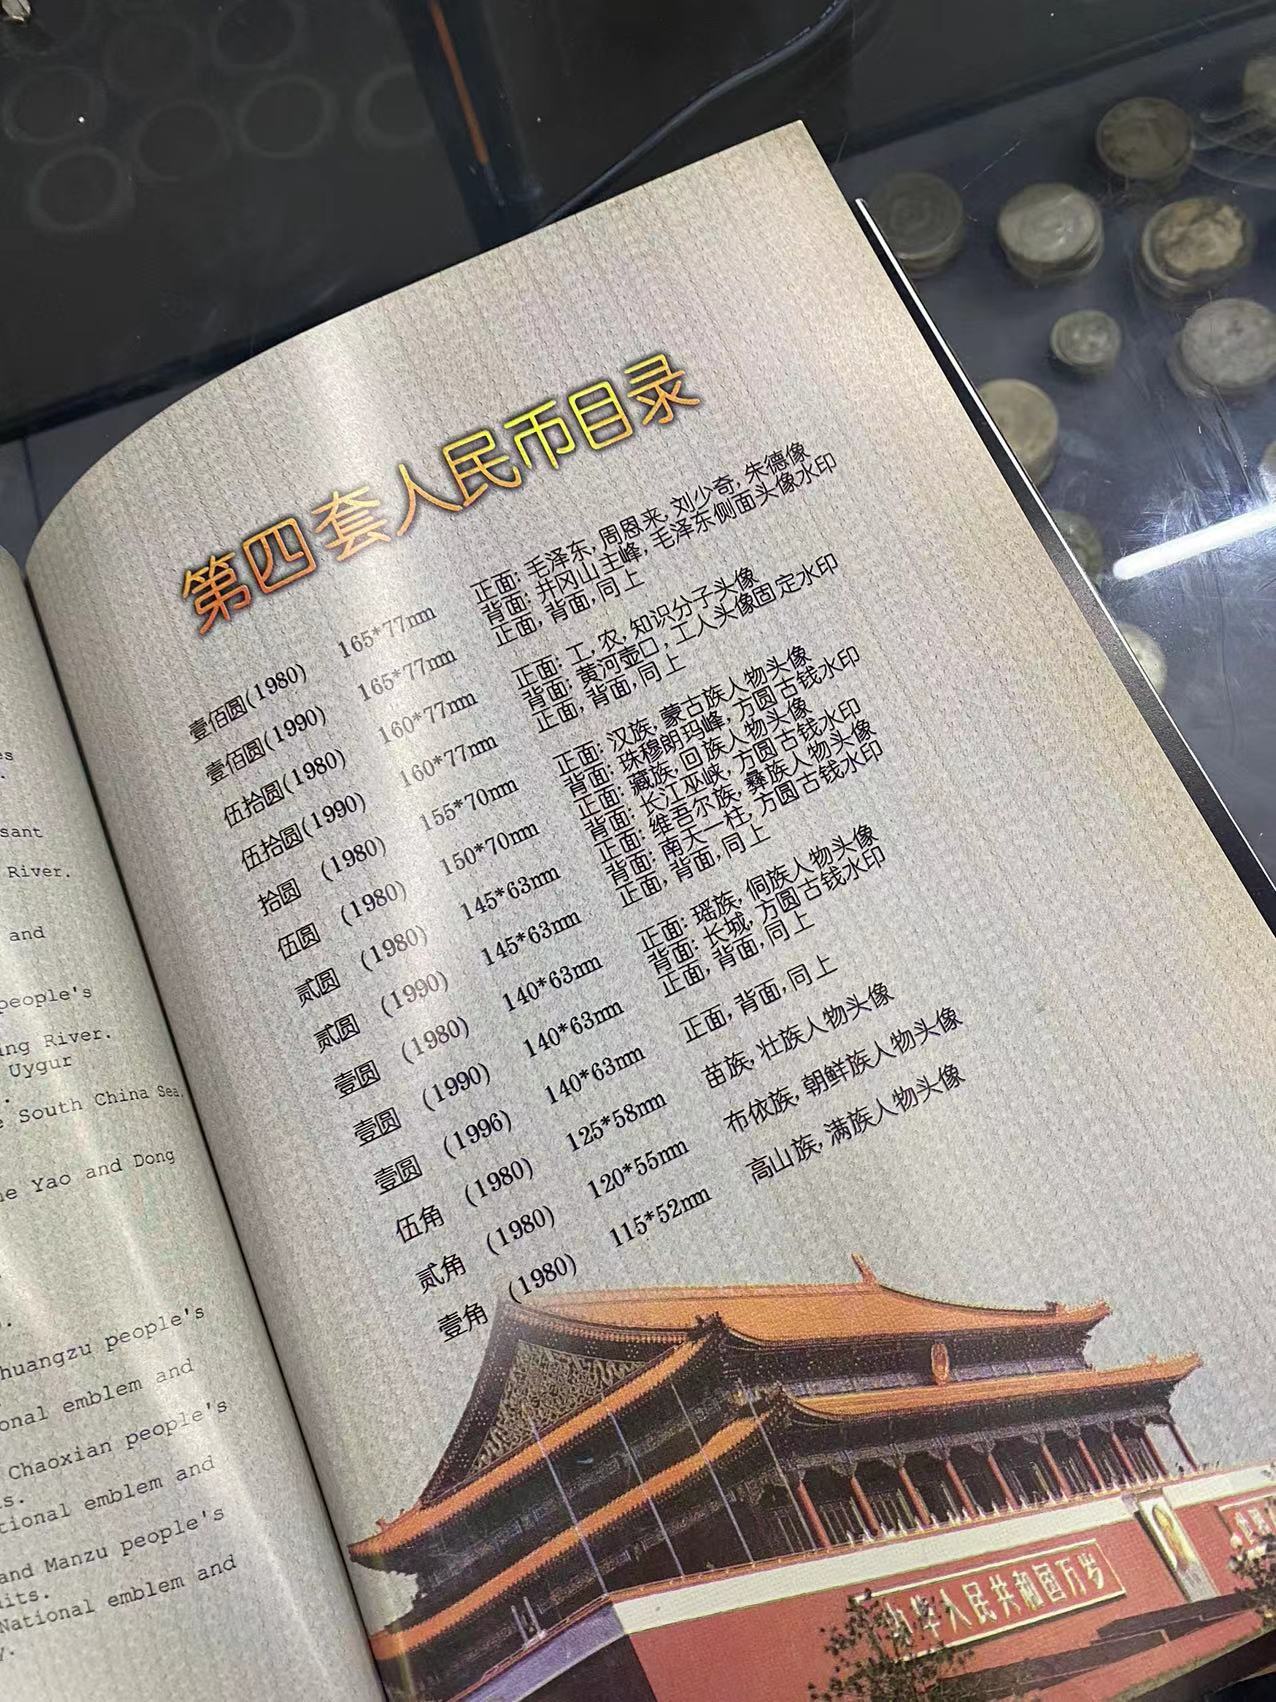 es
sant
River.
and
people's
ing River.
Uygur
e South China Sea,
he Yao and Dong
huangzu people's
onal emblem and
Chaoxian people's
s.
tional emblem and
and Manzu people's
its.
National emblem and
y.
第四套人民币目录
壹佰圆(1980) 165*77mm 正面: 毛泽东, 周恩来, 刘少奇, 朱德像
背面: 井冈山主峰, 毛泽东侧面头像水印
壹佰圆(1990) 165*77mm 正面, 背面, 同上
伍拾圆(1980) 160*77mm 正面: 工, 农, 知识分子头像
背面: 黄河壶口, 工人头像固定水印
伍拾圆(1990) 160*77mm 正面, 背面, 同上
拾圆 (1980) 155*70mm 正面: 汉族, 蒙古族人物头像
背面: 珠穆朗玛峰, 方圆古钱水印
伍圆 (1980) 150*70mm 正面: 藏族, 回族人物头像
背面: 长江巫峡, 方圆古钱水印
贰圆 (1980) 145*63mm 正面: 维吾尔族, 彝族人物头像
背面: 南天一柱, 方圆古钱水印
贰圆 (1990) 145*63mm 正面, 背面, 同上
壹圆 (1980) 140*63mm 正面: 瑶族, 侗族人物头像
背面: 长城, 方圆古钱水印
壹圆 (1990) 140*63mm 正面, 背面, 同上
壹圆 (1996) 140*63mm 正面, 背面, 同上
伍角 (1980) 125*58mm 苗族, 壮族人物头像
贰角 (1980) 120*55mm 布依族, 朝鲜族人物头像
壹角 (1980) 115*52mm 高山族, 满族人物头像
中华人民共和国万岁